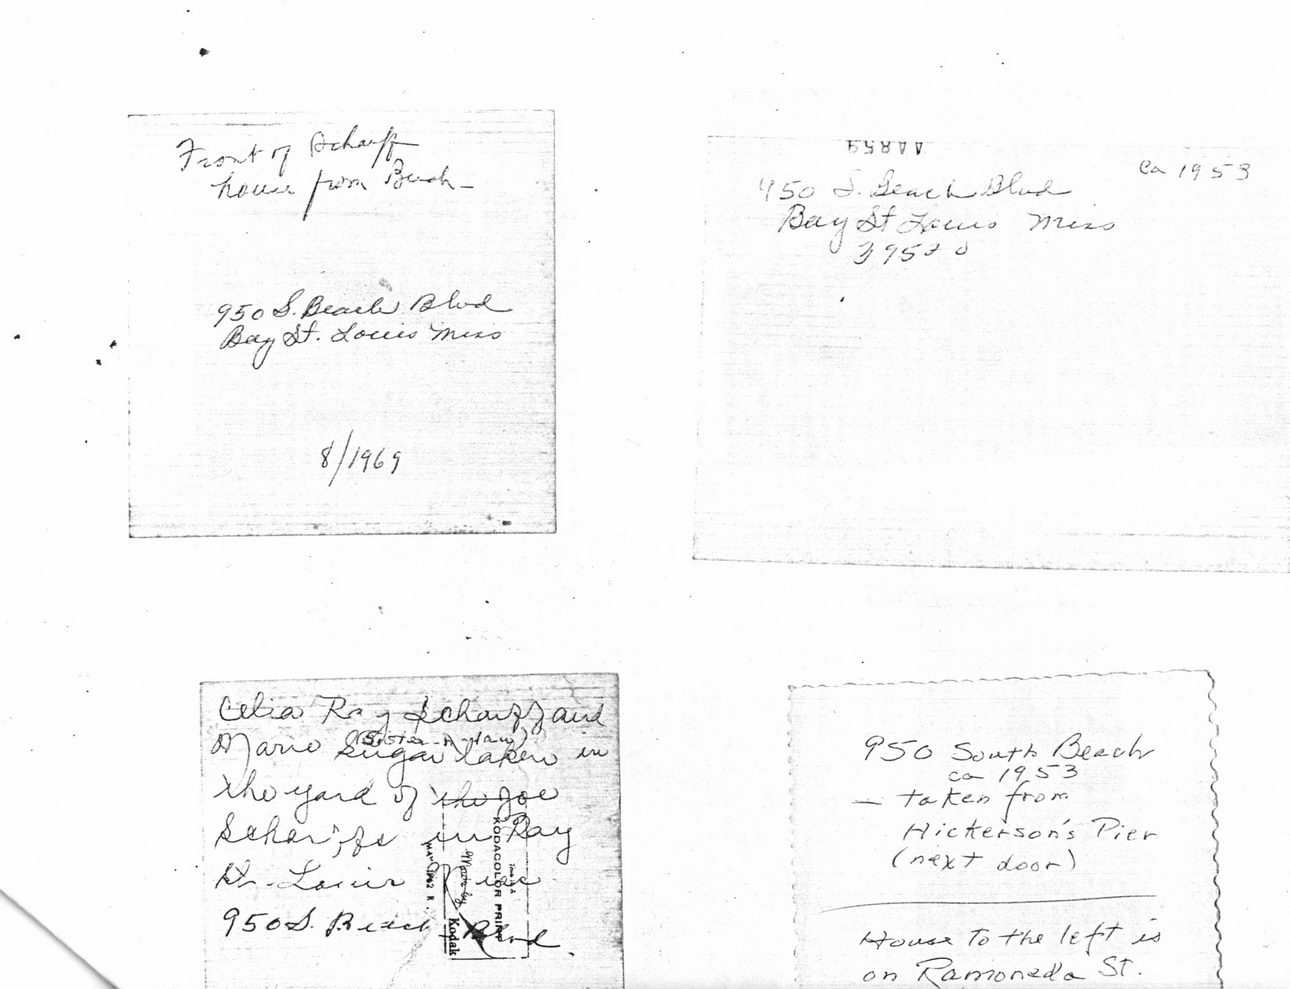 Front of Scharff
house from Beach –
950 S. Beach Blvd
Bay St. Louis Miss
8/1969
AA859
ca 1953
950 S. Beach Blvd
Bay St Louis Miss
39520
Celia Ray Scharff and
(Sister-n-law)
Marie Sugar taken in
the yard of the Joe
Scharffs in Bay
St. Louis Miss
950 S. Beach Blvd.
KODACOLOR PRINT
Made by
Kodak
1962 R.
950 South Beach
ca 1953
– taken from
Hickerson's Pier
(next door)
House to the left is
on Ramoneda St.